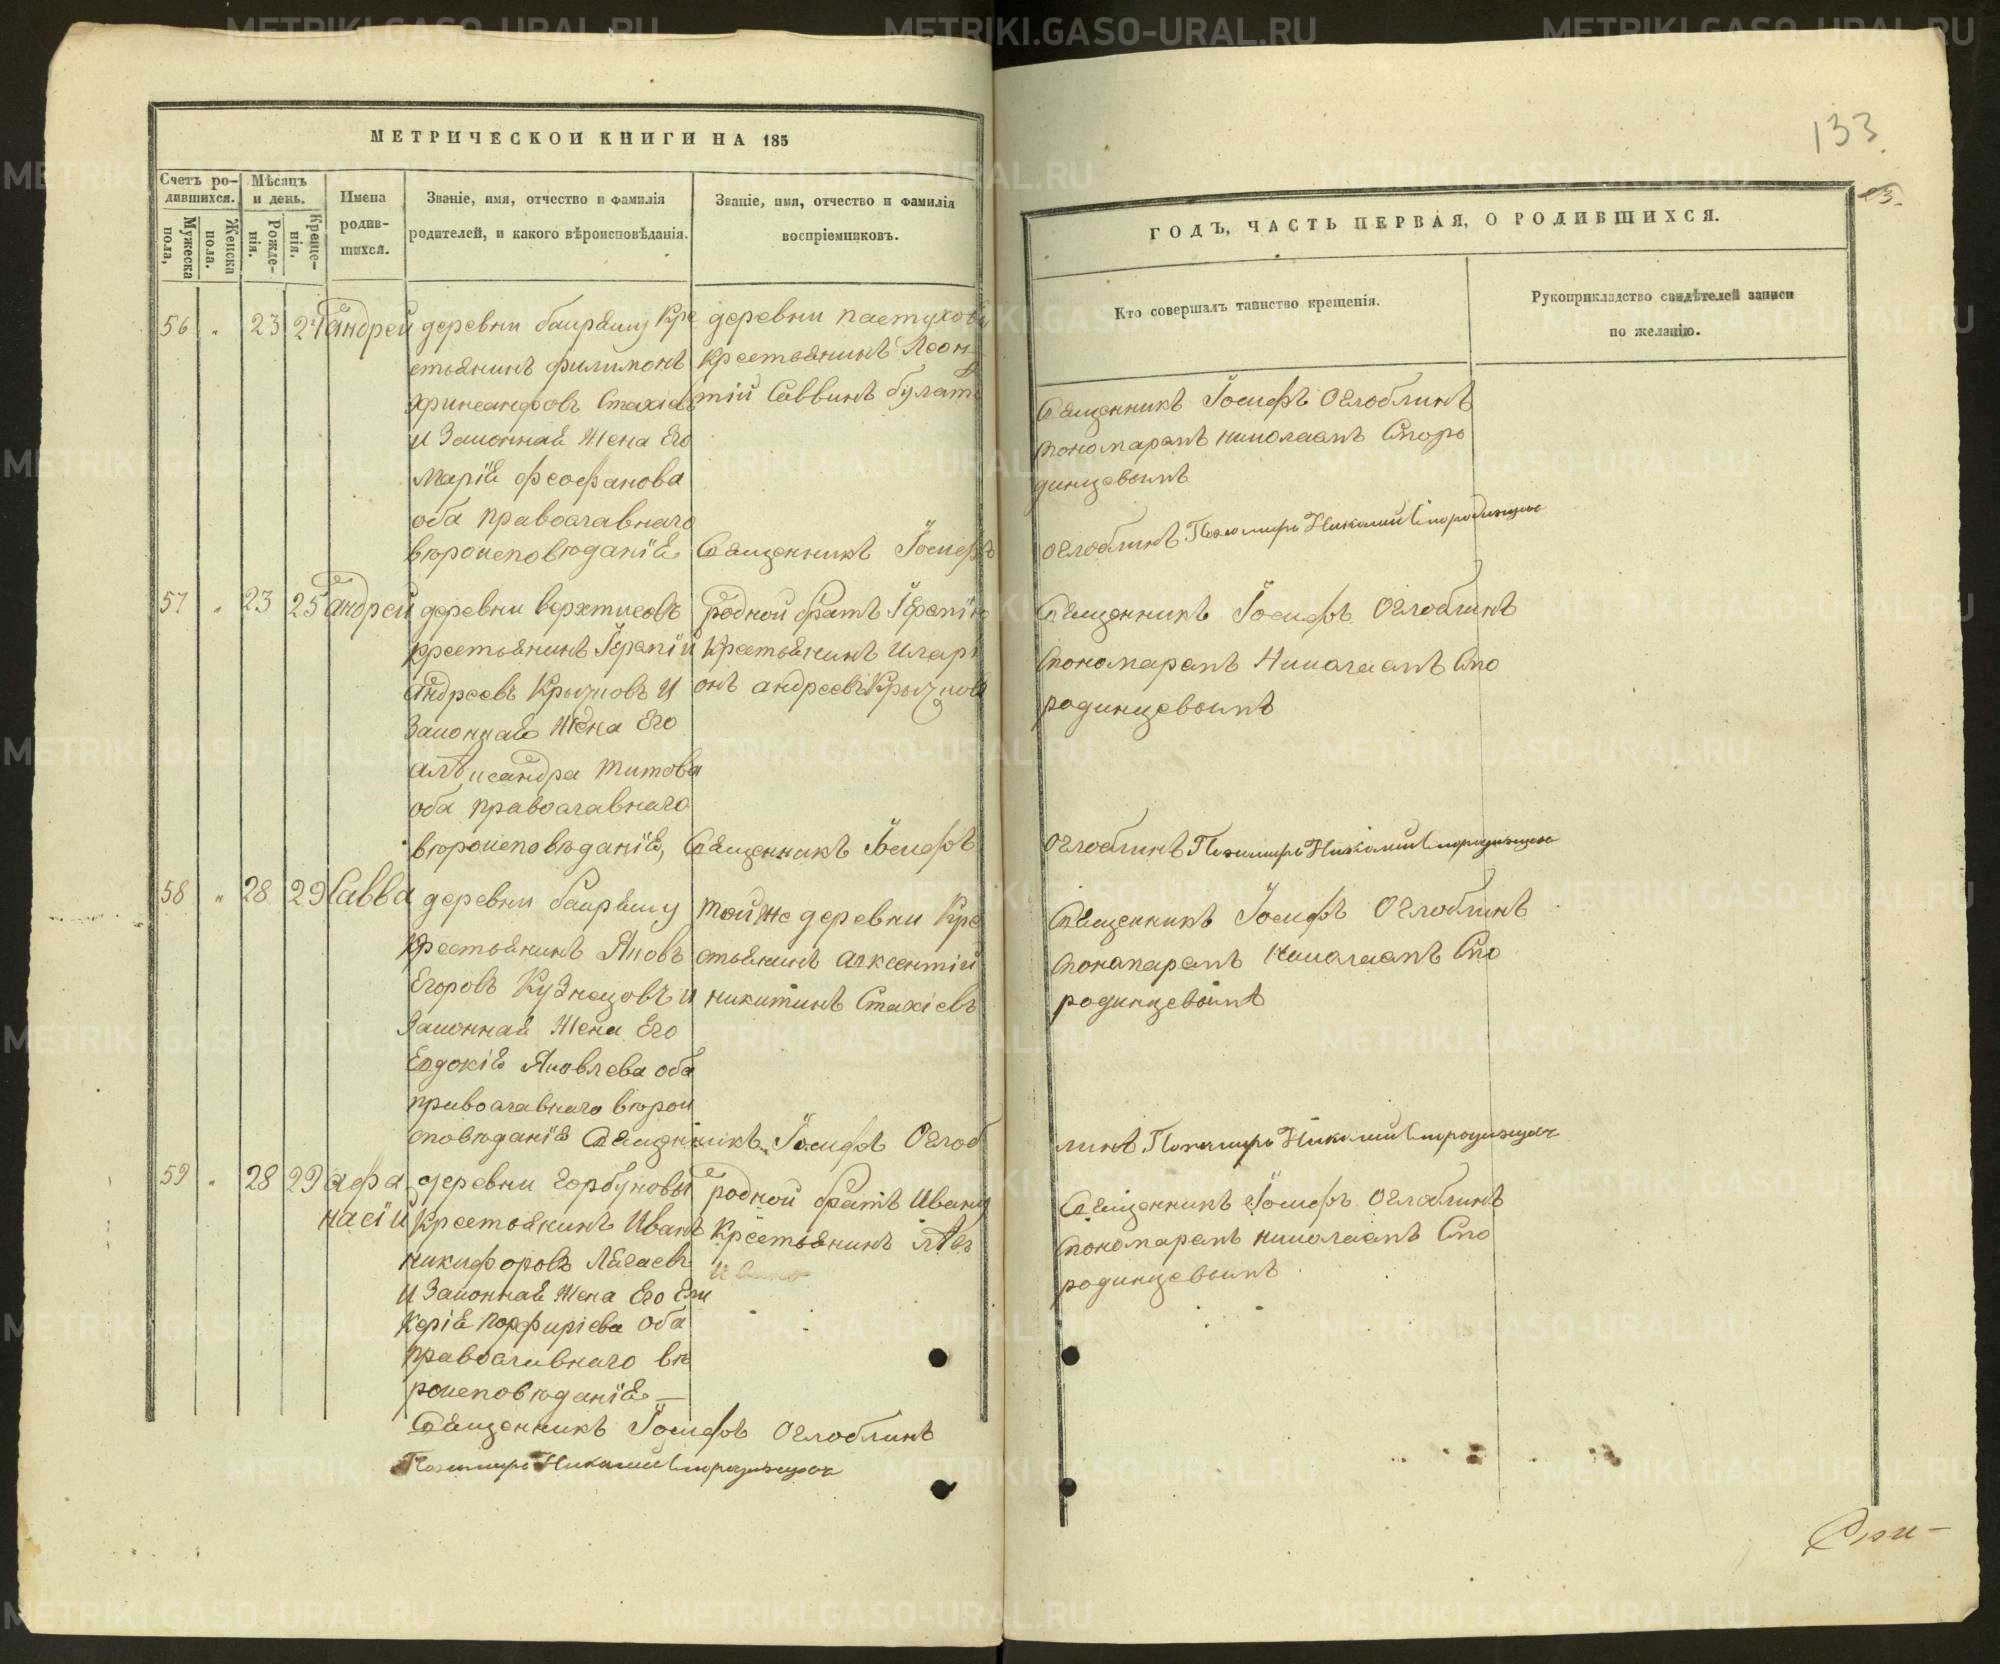 МЕТРИЧЕСКОЙ КНИГИ НА 185
Счетъ родившихся.
Мужеска пола,
Женска пола.
Мѣсяцъ и день.
Рожденія.
Крещенія.
Имена родившихся.
Званіе, имя, отчество и фамилія
родителей, и какого вѣроисповѣданія.
Званіе, имя, отчество и фамилія
воспріемниковъ.
56 " 23 24 андрей
деревни баиряку Кре
стьянинъ филимонъ
Стахіевъ
и Законная Жена Его
Марія феофанова
оба православнаго
вѣроисповѣданія
деревни пастухов
крестьянинъ Леон
тій Саввинъ булат
Священникъ Іосифъ
57 " 23 25 андрей
деревни
крестьянинъ Терапій
андреевъ И
Законная Жена Его
алѣксандра титова
оба православнаго
вѣроисповѣданія,
родной братъ
крестьянинъ илари
онъ андреевъ
Священникъ Іосифъ
58 " 28 29 Савва
деревни баиряку
крестьянинъ Яковъ
Егоровъ Кузнецовъ и
Законная Жена Его
Евдокія Яковлева оба
православнаго вѣрои
сповѣданія Священникъ Іосифъ Оглоб
той же деревни Кре
стьянинъ авксентій
никитинъ Стахіевъ
59 " 28 29 афа
насій
деревни горбуновы
крестьянинъ Иванъ
никифоровъ
и Законная Жена Его Гли
керія порфиріева оба
православнаго вѣ
роисповѣданія
Священникъ Іосифъ Оглоблинъ
Пономарь Николай Смородинцовъ
родной братъ Ивану
Крестьянинъ
133
ГОДЪ, ЧАСТЬ ПЕРВАЯ, О РОДИВШИХСЯ.
Кто совершалъ таинство крещенія.
Рукоприкладство свидѣтелей записи
по желанію.
Священникъ Іосифъ Оглоблинъ
пономаремъ николаемъ Сморо
динцевымъ
оглоблинъ Пономарь Николай Смородинцовъ
Священникъ Іосифъ Оглоблинъ
пономаремъ Николаемъ Смо
родинцевымъ
оглоблинъ Пономарь Николай Смородинцовъ
Священникъ Іосифъ Оглоблинъ
пономаремъ николаемъ Смо
родинцевымъ
линъ Пономарь Николай Смородинцовъ
Священникъ Іосифъ Оглоблинъ
пономаремъ николаемъ Смо
родинцевымъ
METRIKI.GASO-URAL.RU